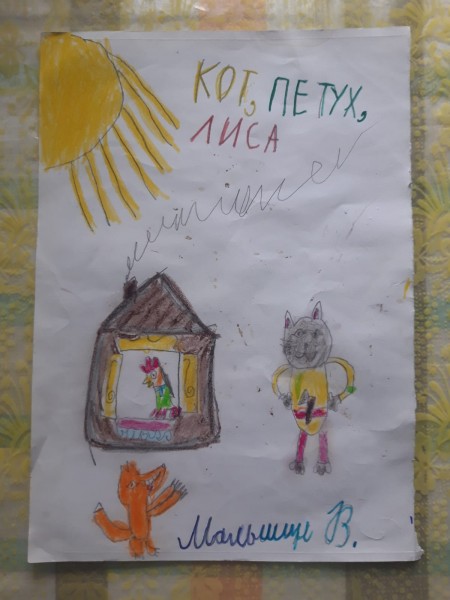 КОТ, ПЕТУХ,
ЛИСА
Малышице В.